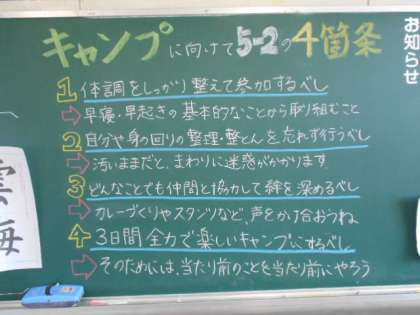 キャンプに向けて5-2の4箇条
お知らせ
1 体調をしっかり整えて参加するべし
→早寝・早起きの基本的なことから取り組むこと
2 自分や身の回りの整理・整とんを忘れず行うべし
→汚いままだと、まわりに迷惑がかかります
3 どんなことでも仲間と協力して絆を深めるべし
→カレーづくりやスタンツなど、声をかけ合おうね
4 3日間全力で楽しいキャンプにするべし
→そのためには、当たり前のことを当たり前にやろう
雲海